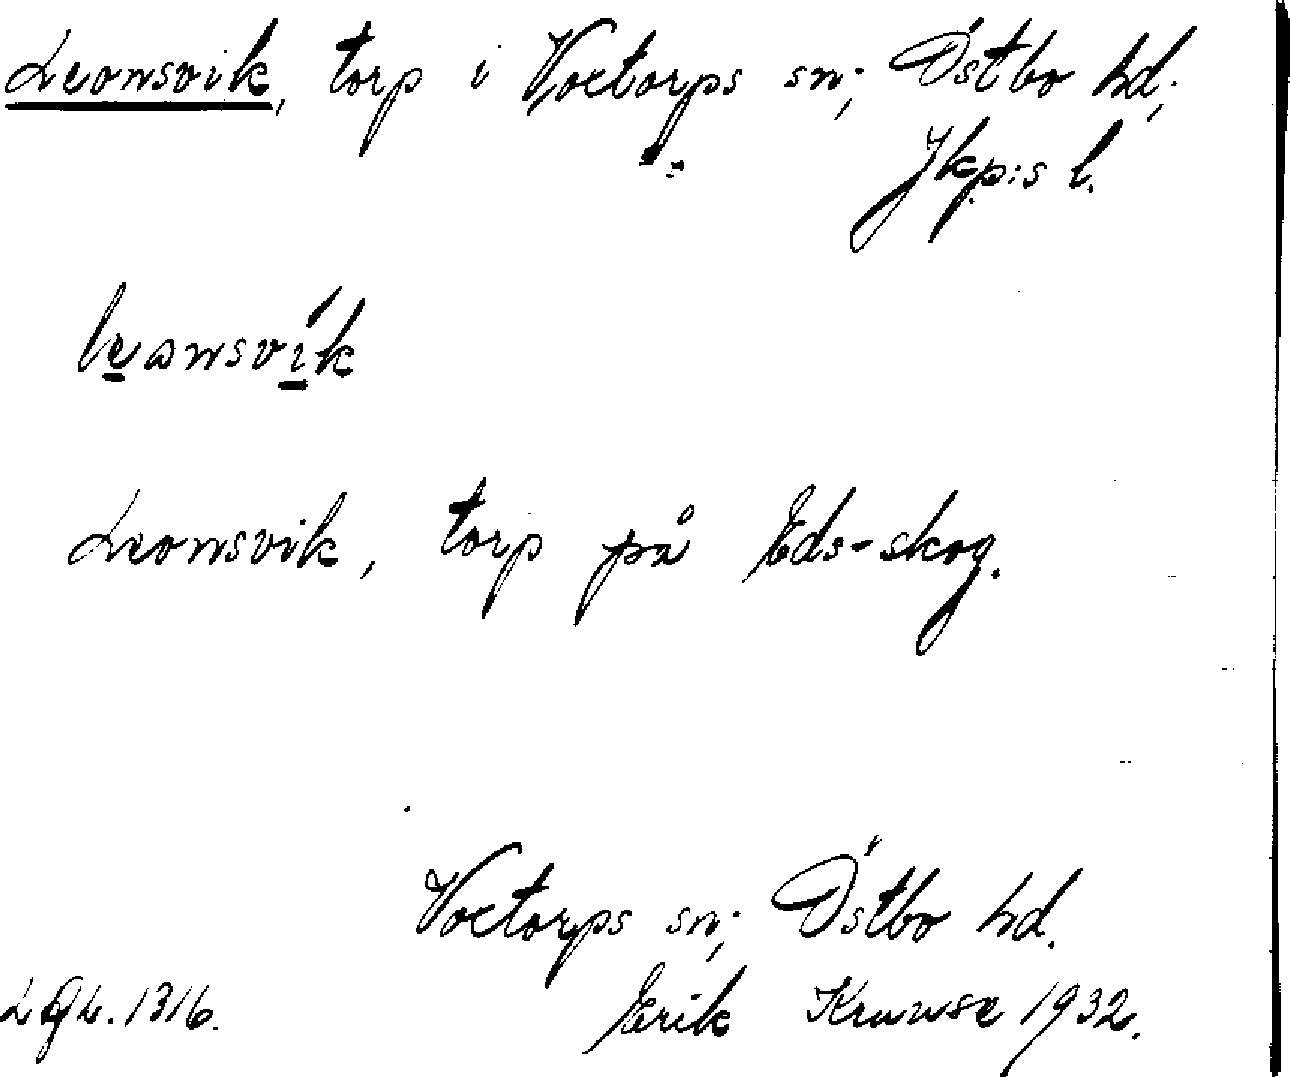 Leonsvik, torp i Voxtorps sn; Östbo hd;
Jkp:s l.
leonsvik
Leonsvik, torp på Eds-skog.
Voxtorps sn; Östbo hd.
1316. Erik Krause 1932.